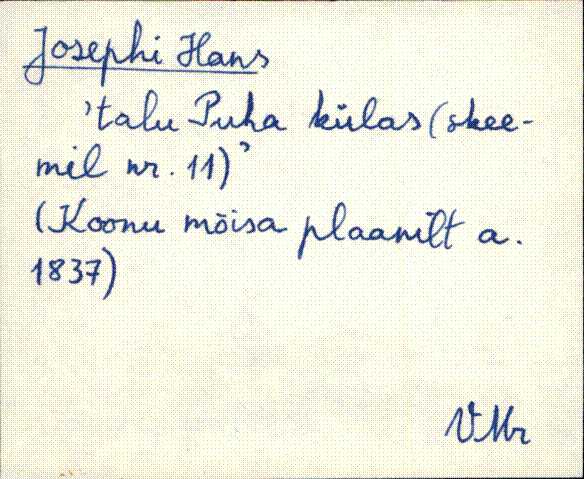 Josephi Hans
'talu Puha külas (skee-
mil nr. 11)'
(Koonu mõisa plaanilt a.
1837)
VMr